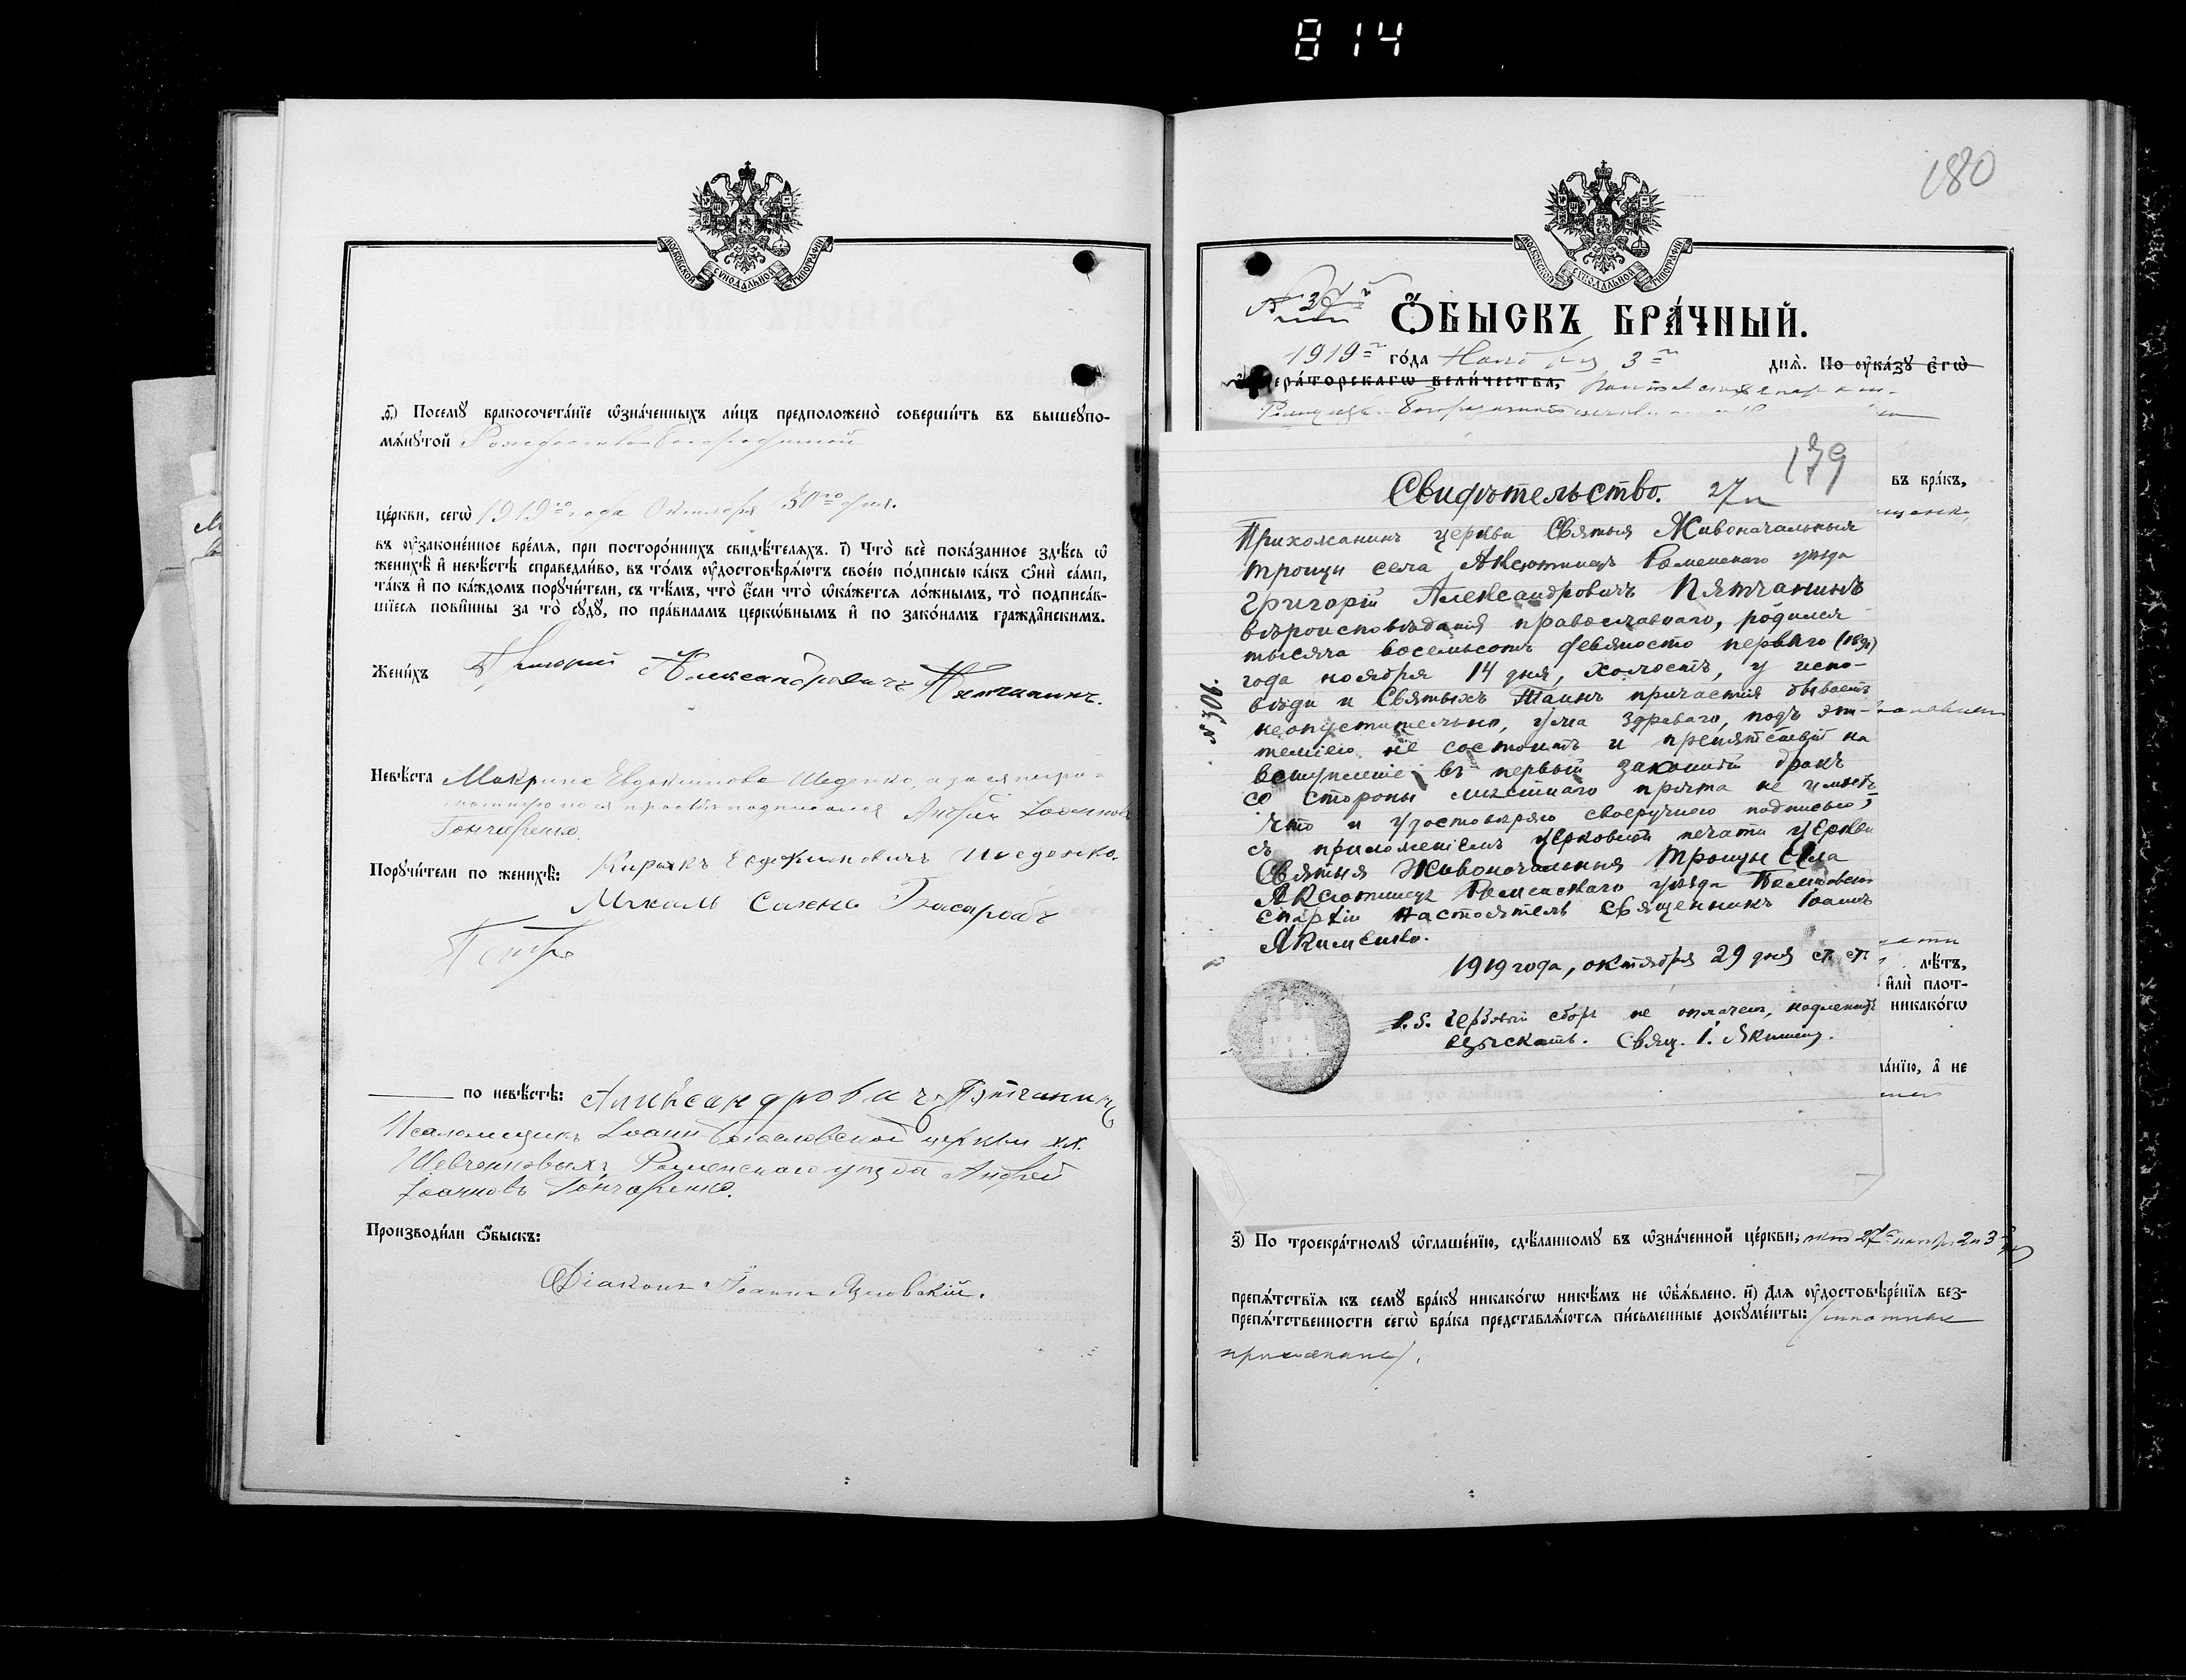 814
МОСКОВСКОЙ СУНОДАЛЬНОЙ ТИПОГРАФІИ
ѳ҃) Посемꙋ̀ бракосочета́нїе ѡ҆зна́ченныхъ ли́цъ предположено̀ соверши́ть въ вышеꙋпо-
мѧ́нꙋтой Рождество-Богородичной
це́ркви, сегѡ̀ 1919го года Октября 30го дня.
въ ᲂу҆зако́ненное вре́мѧ, при посторо́ннихъ свидѣ́телѧхъ. і҃) Что̀ всѐ пока́занное здѣ́сь ѡ҆
женихѣ̀ и҆ невѣ́стѣ справедли́во, въ то́мъ ᲂу҆достовѣрѧ́ютъ свое́ю по́дписью ка́къ ѻ҆нѝ са́ми,
та́къ и҆ по ка́ждомъ порꙋчи́тели, съ тѣ́мъ, что̀ є҆́сли что̀ ѡ҆ка́жетсѧ ло́жнымъ, то̀ подписа́в-
шїесѧ пови́нны за то̀ сꙋдꙋ̀, по пра́виламъ церко́внымъ и҆ по зако́намъ гражда́нскимъ.
Жени́хъ Григорій Александровичъ Пятчанинъ.
Невѣ́ста Макрина Евдокимова Шеденко, а за ея негра-
мотную по ея просьбѣ подписался Андрей Іоанновъ
Гончаренко.
Порꙋчи́тели по женихѣ̀: Кирьякъ Евдокимовичъ Шеденко.
Басарабъ
Петръ
по невѣ́стѣ: Александровичъ Пятчанинъ
Псаломщикъ Іоанно-Богословской церкви хх.
Шевченковыхъ, Роменскаго уѣзда Андрей
Іоанновъ Гончаренко.
Производи́ли ѻ҆́быскъ:
Діаконъ Іоаннъ
180
МОСКОВСКОЙ СУНОДАЛЬНОЙ ТИПОГРАФІИ
№ 37й
Ѻ҆́БЫСКЪ БРА́ЧНЫЙ.
1919го го́да Ноября 3го днѧ̀. По ᲂу҆ка́зꙋ є҆гѡ̀
ера́торскагѡ вели́чества,
въ бра́къ,
139
Свидѣтельство. 27
Прихожанинъ церкви Святыя Живоначальныя
Троицы села Аксютинецъ Роменскаго уѣзда
Григорій Александровичъ Пятчанинъ
вѣроисповѣданія православнаго, родился
тысяча восемьсотъ девяносто перваго (1891)
года ноября 14 дня, холостъ, у испо-
вѣди и Святыхъ Таинъ причастія бываетъ
неопустительно, ума здраваго, подъ эпи-
теміею не состоитъ и препятствій на
вступленіе въ первый законный бракъ
со стороны мѣстнаго причта не имѣетъ
что и удостовѣряю своеручною подписью,
съ приложеніемъ церковной печати церкви
Святыя Живоначальныя Троицы села
Аксютинецъ Роменскаго уѣзда Полтавской
епархіи настоятель священникъ Іоаннъ
Якименко.
1919 года, октября 29 дня ст. ст.
P.S. Гербовый сборъ не оплаченъ, надлежитъ
взыскать. Свящ. І. Якименко.
№ 306.
лѣ́тъ,
и҆лѝ плот-
никако́гѡ
ла́нїю, а҆ не
з҃) По троекра́тномꙋ ѡ҆глаше́нїю, сдѣ́ланномꙋ въ ѡ҆зна́ченной це́ркви,
препѧ́тствїѧ къ семꙋ̀ бра́кꙋ никако́гѡ никѣ́мъ не ѡ҆б̾ѧ́влено. и҃) Длѧ ᲂу҆достовѣре́нїѧ без-
препѧ́тственности сегѡ̀ бра́ка представлѧ́ютсѧ пи́сьменные докꙋме́нты: